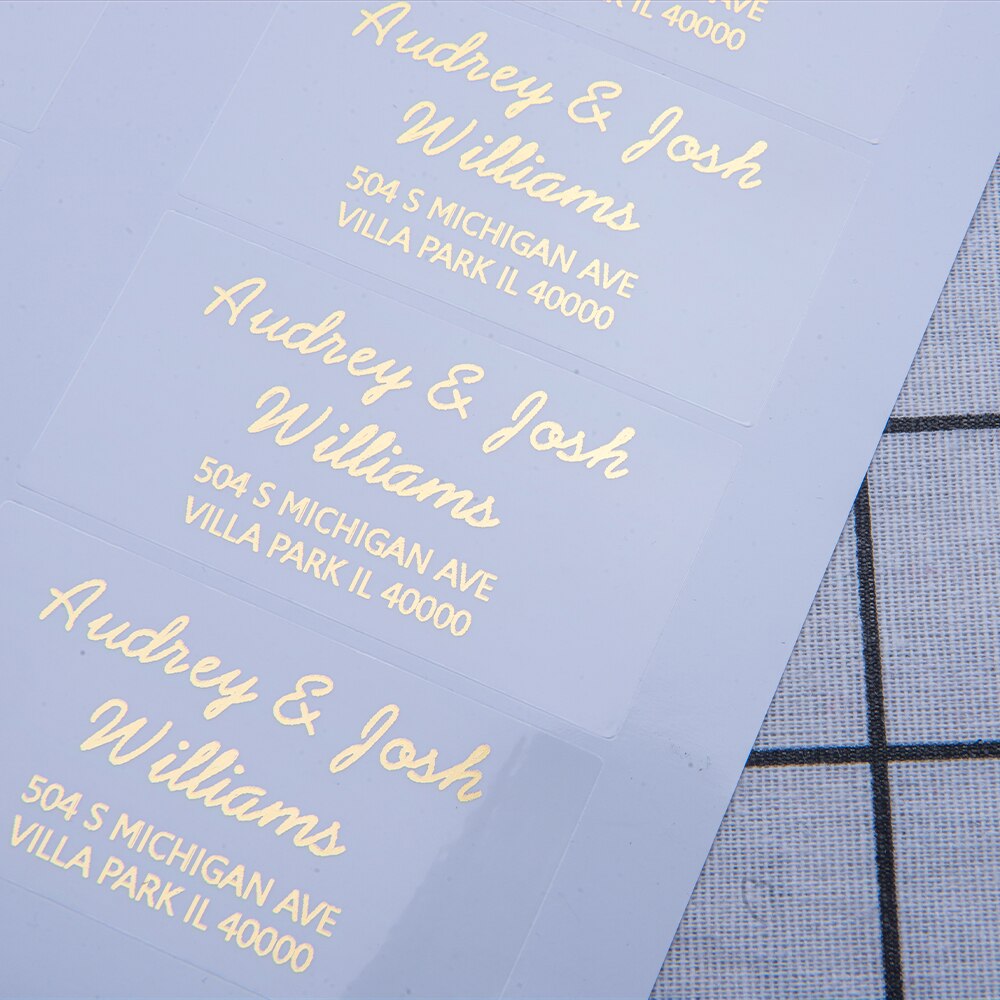 AVE
IL 40000
Audrey & Josh
Williams
504 S MICHIGAN AVE
VILLA PARK IL 40000
Audrey & Josh
Williams
504 S MICHIGAN AVE
VILLA PARK IL 40000
Audrey & Josh
Williams
504 S MICHIGAN AVE
VILLA PARK IL 40000